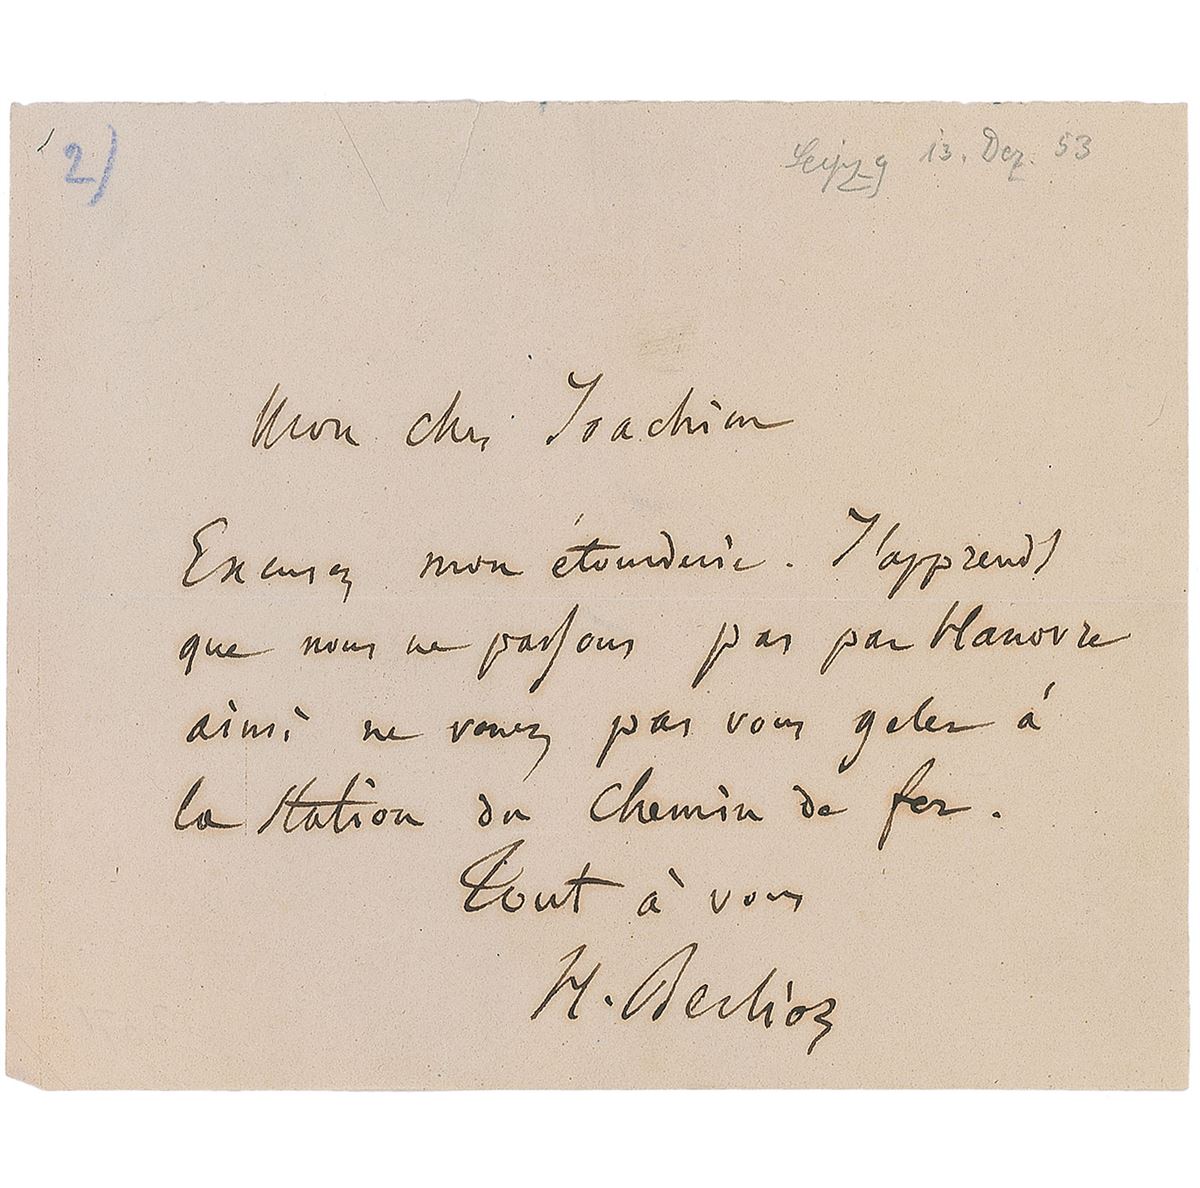 2)
Leipzg 13. Dez. 53
Mon cher Joachim
Excusez mon étourderie. J'apprends
que nous ne passons pas par Hanovre
ainsi ne venez pas vous geler à
la station du chemin de fer.
Tout à vous
H. Berlioz